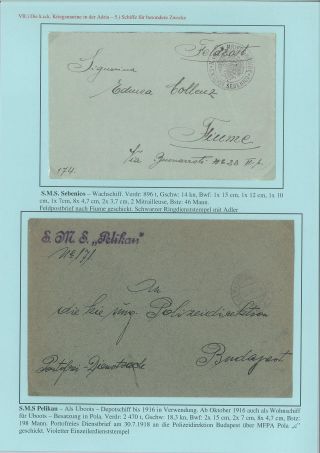 VII.) Die k.u.k. Kriegsmarine in der Adria – 5.) Schiffe für besondere Zwecke
Feldpost
Signorina
Edwea Collenz
Fiume
Via
174.
S.M.S. Sebenico – Wachschiff. Verdr: 896 t, Gschw: 14 kn, Bwf: 1x 15 cm, 1x 12 cm, 1x 10
cm, 1x 7cm, 8x 4,7 cm, 2x 3,7 cm, 2 Mitrailleuse, Bstz: 46 Mann.
Feldpostbrief nach Fiume geschickt. Schwarzer Ringdienststempel mit Adler
S. M. S. „Pelikan"
An
die kön. ung. Polizeidirektion
Portofrei - Dienstsache
Budapest
S.M.S Pelikan – Als Uboots – Depotschiff bis 1916 in Verwendung. Ab Oktober 1916 auch als Wohnschiff
für Uboots – Besatzung in Pola. Verdr: 2 470 t, Gschw: 18,3 kn, Bwf: 2x 15 cm, 2x 7 cm, 8x 4,7 cm, Bstz:
198 Mann. Portofreies Dienstbrief am 30.7.1918 an die Polizeidirektion Budapest über MFPA Pola „c"
geschickt. Violetter Einzeilerdienststempel